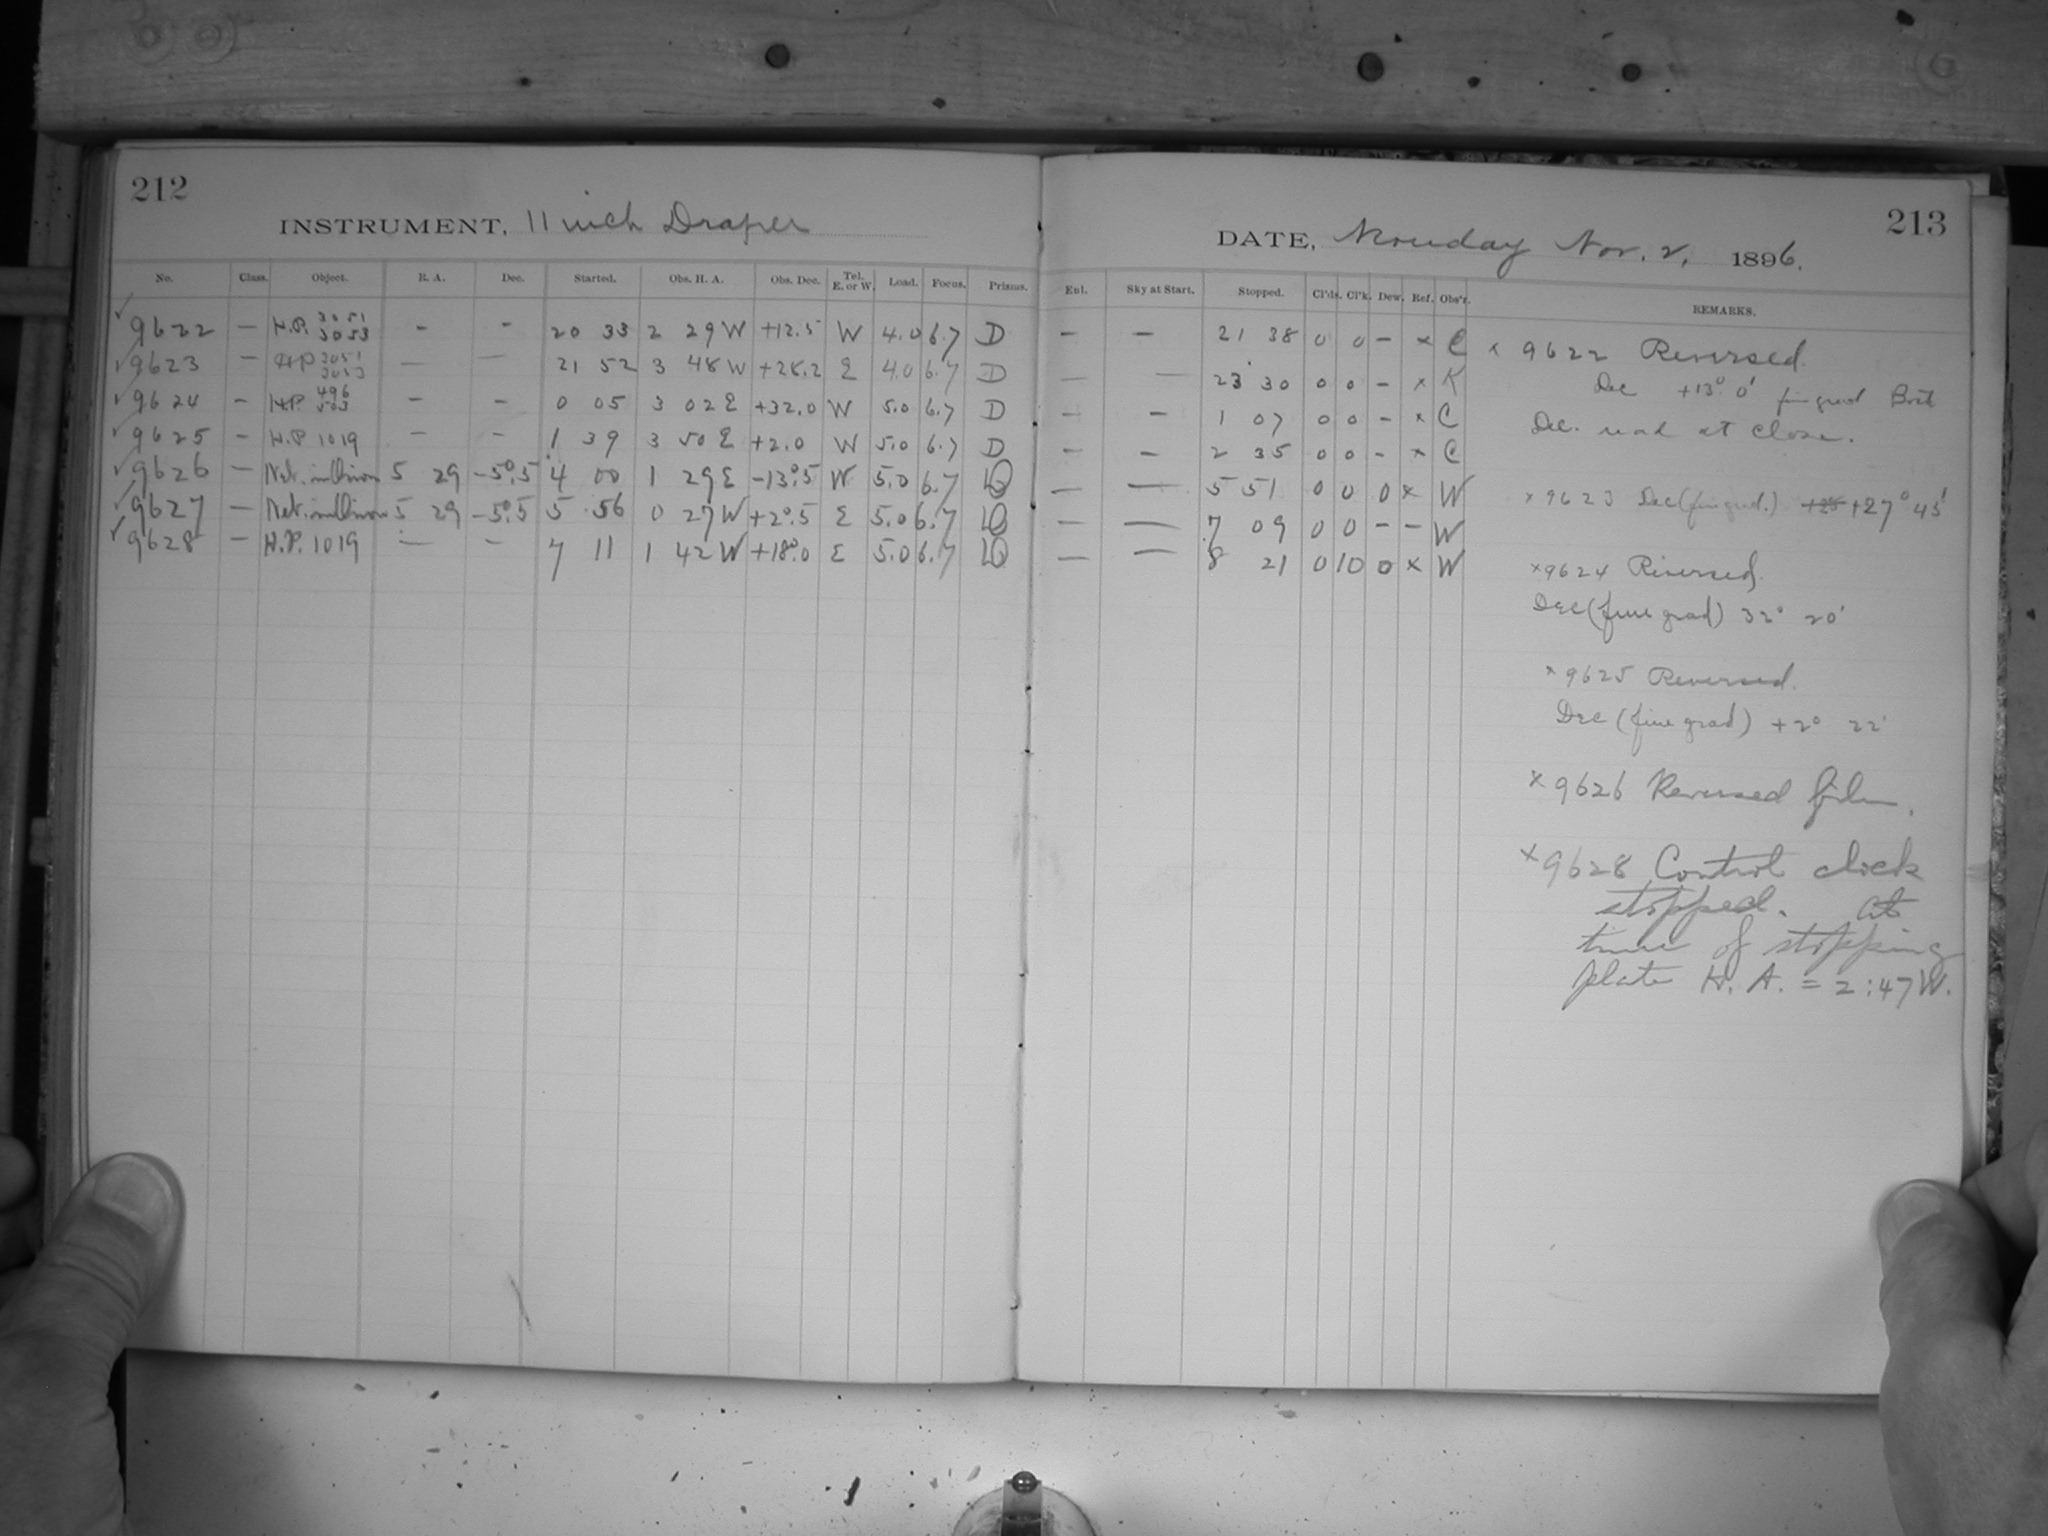 212
INSTRUMENT, 11 inch Draper
No. Class. Object. R. A. Dec. Started. Obs. H. A. Obs. Dec. Tel. E. or W. Load. Focus. Prisms.
9622 — H.P. 3051 3053 - - 20 33 2 29 W +12.5 W 4.0 6.7 D
9623 — H.P. 3051 3053 — — 21 52 3 48 W +28.2 E 4.0 6.7 D
9624 - H.P. 496 503 - - 0 05 3 02 E +32.0 W 5.0 6.7 D
9625 - H.P 1019 - - 1 39 3 50 E +2.0 W 5.0 6.7 D
9626 — Neb. in Orion 5 29 -5°.5 4 00 1 29 E -13°.5 W 5.0 6.7
9627 — Neb. in Orion 5 29 -5°.5 5 56 0 27 W +2°.5 E 5.0 6.7
9628 — H.P. 1019 — - 7 11 1 42 W +18°.0 E 5.0 6.7
213
DATE, Monday Nov. 2, 1896.
Eul. Sky at Start. Stopped. Cl'ds. Cl'k. Dew. Ref. Obs'r. REMARKS.
— — 21 38 0 0 — x C
— — 23 30 0 0 - x K
— - 1 07 0 0 - x C
— - 2 35 0 0 - x C
— — 5 51 0 0 0 x W
— — 7 09 0 0 - — W
— — 8 21 0 10 0 x W
x 9622 Reversed.
Dec +13° 0' fine grad
Dec. read at close.
x 9623 Dec (fine grad.) +28 +27° 45'
x 9624 Reversed.
Dec (fine grad) 32° 20'
x 9625 Reversed.
Dec (fine grad) +2° 22'
x 9626 Reversed film.
x 9628 Control clock
stopped. At
time of stopping
plate H. A. = 2:47 W.